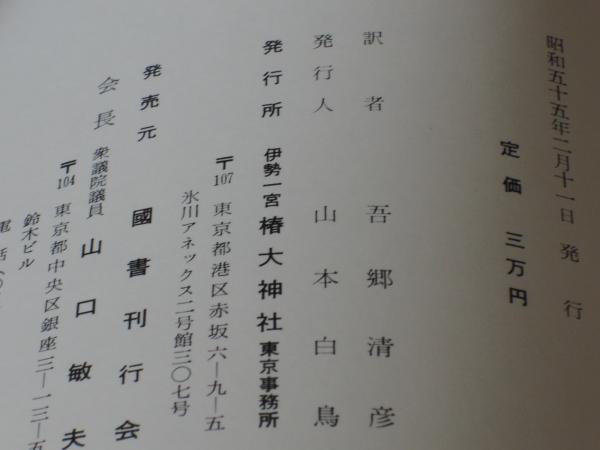 昭和五十五年二月十一日 発行
定価 三万円
訳者 吾郷清彦
発行人 山本白鳥
発行所 伊勢一宮 椿大神社 東京事務所
〒107 東京都港区赤坂六―九―五
氷川アネックス二号館三〇七号
発売元 國書刊行会
会長 衆議院議員 山口敏夫
〒104 東京都中央区銀座三―一三―五
鈴木ビル
電話